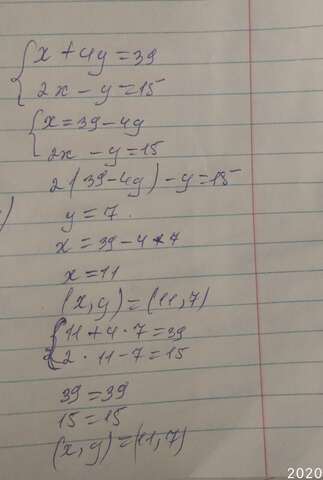 {x + 4y = 39
2x - y = 15
{x = 39 - 4y
2x - y = 15
2(39 - 4y) - y = 15
) y = 7.
x = 39 - 4 * 7
x = 11
(x, y) = (11, 7)
{11 + 4 · 7 = 39
2 · 11 - 7 = 15
39 = 39
15 = 15
(x, y) = (11, 7)
2020